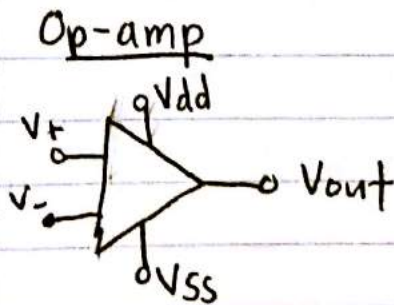 Op-amp
Vdd
V+
Vout
V-
VSS